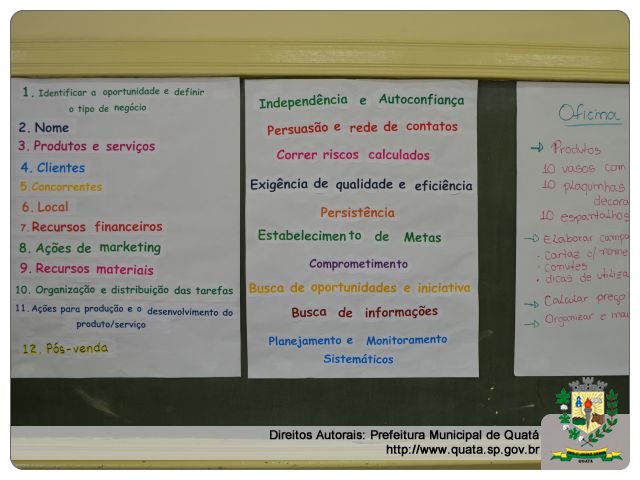 1. Identificar a oportunidade e definir
o tipo de negócio
2. Nome
3. Produtos e serviços
4. Clientes
5. Concorrentes
6. Local
7. Recursos financeiros
8. Ações de marketing
9. Recursos materiais
10. Organização e distribuição das tarefas
11. Ações para produção e o desenvolvimento do
produto/serviço
12. Pós-venda
Independência e Autoconfiança
Persuasão e rede de contatos
Correr riscos calculados
Exigência de qualidade e eficiência
Persistência
Estabelecimento de Metas
Comprometimento
Busca de oportunidades e iniciativa
Busca de informações
Planejamento e Monitoramento
Sistemáticos
Oficina
→ Produtos
10 vasos com
10 plaquinhas
decora
10 espantalhos
→ Elaborar campa
· cartaz c/ nome
· convites
· dicas de utiliza
→ Calcular preço
→ Organizar e
Direitos Autorais: Prefeitura Municipal de Quatá
http://www.quata.sp.gov.br
QUATÁ